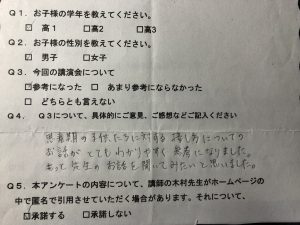 Q1.お子様の学年を教えてください。
☑高1 □高2 □高3
Q2.お子様の性別を教えてください。
☑男子 □女子
Q3.今回の講演会について
☑参考になった □あまり参考にならなかった
□どちらとも言えない
Q4. Q3について、具体的にご意見、ご感想などご記入ください
思春期の子供たちに対する接し方についての
お話がとてもわかりやすく参考になりました。
もっと先生のお話を聞いてみたいと思いました。
Q5.本アンケートの内容について、講師の木村先生がホームページの
中で匿名で引用させていただく場合があります。それについて、
☑承諾する □承諾しない